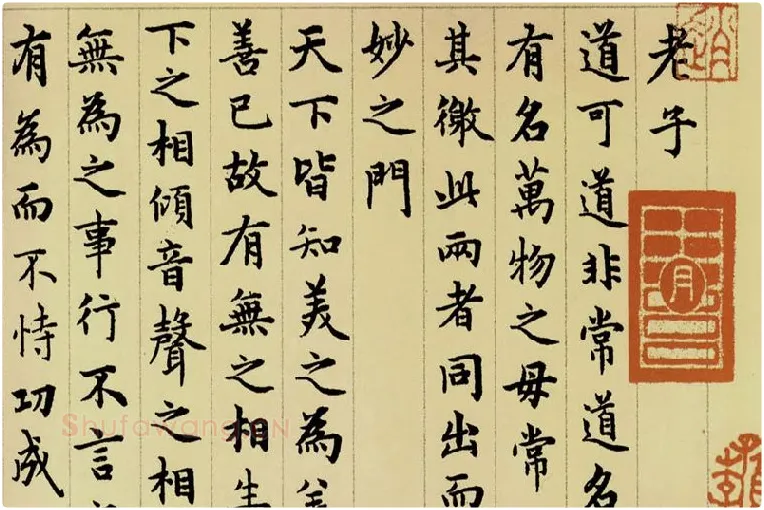 老子
道可道非常道名
有名萬物之母常
其徼此兩者同出而
妙之門
天下皆知美之為美
善已故有無之相生
下之相傾音聲之相
無為之事行不言
有為而不恃功成
月
Shufawang.CN